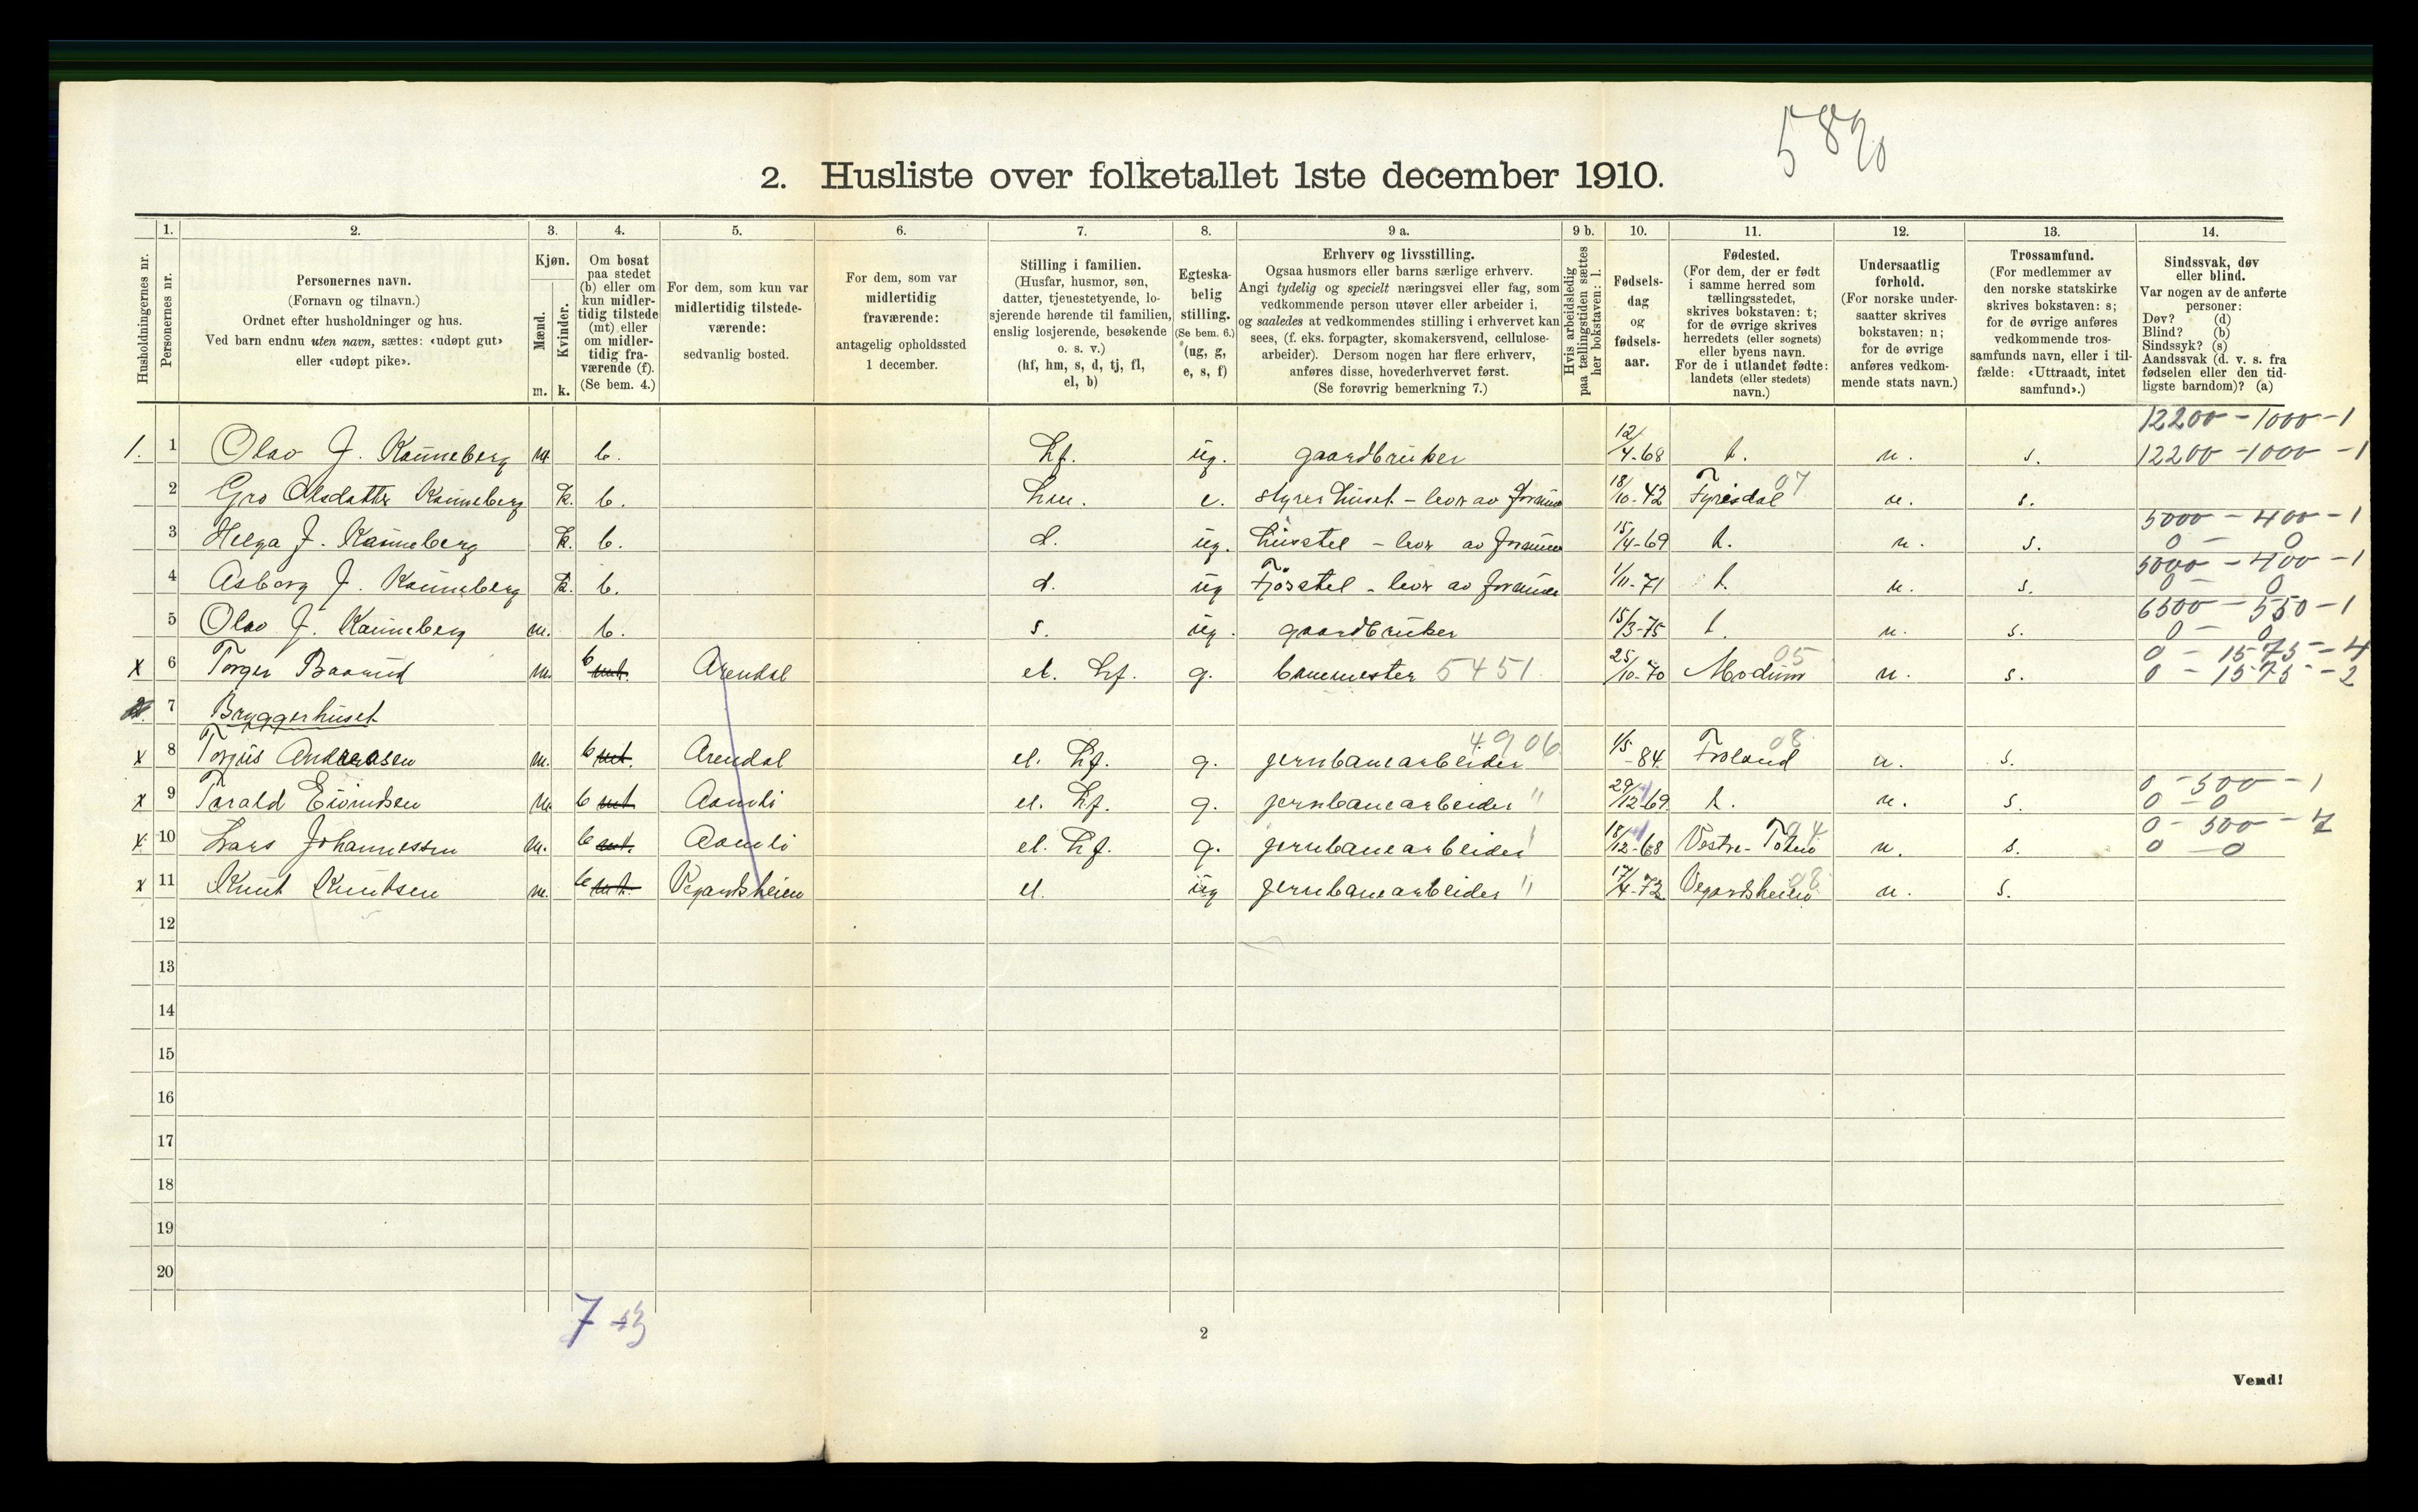 5820
2. Husliste over folketallet 1ste december 1910.
Husholdningernes nr.
1. Personernes nr.
2. Personernes navn. (Fornavn og tilnavn.) Ordnet efter husholdninger og hus. Ved barn endnu uten navn, sættes: «udøpt gut» eller «udøpt pike».
3. Kjøn. Mænd. m. Kvinder. k.
4. Om bosat paa stedet (b) eller om kun midlertidig tilstede (mt) eller om midlertidig fraværende (f). (Se bem. 4.)
5. For dem, som kun var midlertidig tilstedeværende: sedvanlig bosted.
6. For dem, som var midlertidig fraværende: antagelig opholdssted 1 december.
7. Stilling i familien. (Husfar, husmor, søn, datter, tjenestetyende, losjerende hørende til familien, enslig losjerende, besøkende o. s. v.) (hf, hm, s, d, tj, fl, el, b)
8. Egteskabelig stilling. (Se bem. 6.) (ug, g, e, s, f)
9 a. Erhverv og livsstilling. Ogsaa husmors eller barns særlige erhverv. Angi tydelig og specielt næringsvei eller fag, som vedkommende person utøver eller arbeider i, og saaledes at vedkommendes stilling i erhvervet kan sees, (f. eks. forpagter, skomakersvend, cellulosearbeider). Dersom nogen har flere erhverv, anføres disse, hovederhvervet først. (Se forøvrig bemerkning 7.)
9 b. Hvis arbeidsledig paa tællingstiden sættes her bokstaven: l.
10. Fødselsdag og fødselsaar.
11. Fødested. (For dem, der er født i samme herred som tællingsstedet, skrives bokstaven: t; for de øvrige skrives herredets (eller sognets) eller byens navn. For de i utlandet fødte: landets (eller stedets) navn.)
12. Undersaatlig forhold. (For norske undersaatter skrives bokstaven: n; for de øvrige anføres vedkommende stats navn.)
13. Trossamfund. (For medlemmer av den norske statskirke skrives bokstaven: s; for de øvrige anføres vedkommende trossamfunds navn, eller i tilfælde: «Uttraadt, intet samfund».)
14. Sindssvak, døv eller blind. Var nogen av de anførte personer: Døv? (d) Blind? (b) Sindssyk? (s) Aandssvak (d. v. s. fra fødselen eller den tidligste barndom)? (a)
12200 - 1000 - 1
1. 1 Olav J. Kaunneberg m. b. hf. ug. gaardbruker 12/4-68 t. n. s. 12200 - 1000 - 1
2 Gro Olsdatter Kaunneberg k. b. hm. e. styrer huset - lever av formue 18/10-42 Fyresdal 07 n. s.
5000 - 400 - 1
3 Helga J. Kaunneberg k. b. d. ug. husstel - lever av formue 15/4-69 t. n. s. 0 - 0
5000 - 400 - 1
4 Asborg J. Kaunneberg k. b. d. ug Fjøsstel - lever av formue 1/11-71 t. n. s. 0 - 0
6500 - 550 - 1
5 Olav J. Kaunneberg m. b. s. ug. gaardbruker 15/3-75 t. n. s. 0 - 0
0 - 1575 - 4
x 6 Torger Baarud m. b mt. Arendal el. hf. g. banemester 5451 25/10-70 Modum 05 n. s. 0 - 1575 - 2
2. 7 Bryggerhuset
x 8 Torjus Andreasen m. b mt. Arendal el. hf. g. jernbanearbeider 4906 1/5-84 Froland 08 n. s.
0 - 500 - 1
x 9 Tarald Eivindsen m. b mt Aamli el. hf. g. jernbanearbeider " 29/12-69 t. n. s. 0 - 0
0 - 500 - 7
x 10 Lars Johannessen m. b mt. Aamli el. hf. g. jernbanearbeider 18/12-68 Vestre-Toten 04 n. s. 0 - 0
x 11 Knut Knutsen m. b mt. Vegardsheien el. ug jernbanearbeider " 17/4-72 Vegardsheien 08 n. s.
12
13
14
15
16
17
18
19
20
7
2
Vend!